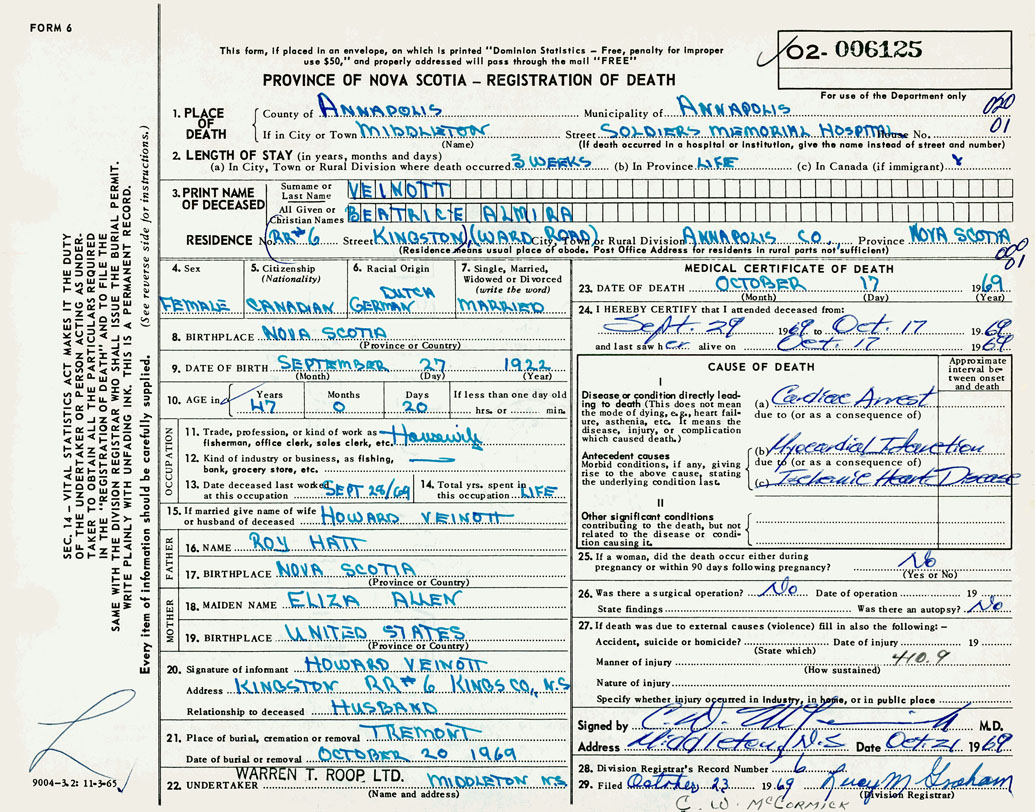 FORM 6
This form, if placed in an envelope, on which is printed "Dominion Statistics – Free, penalty for improper
use $50," and properly addressed will pass through the mail "FREE"
PROVINCE OF NOVA SCOTIA – REGISTRATION OF DEATH
02- 006125
For use of the Department only
020
01
1. PLACE OF DEATH County of ANNAPOLIS Municipality of ANNAPOLIS
If in City or Town MIDDLETON Street SOLDIERS MEMORIAL HOSPITAL House No.
(Name) (If death occurred in a hospital or institution, give the name instead of street and number)
2. LENGTH OF STAY (in years, months and days)
(a) In City, Town or Rural Division where death occurred 3 WEEKS (b) In Province LIFE (c) In Canada (if immigrant)
3. PRINT NAME OF DECEASED Surname or Last Name VEINOTT
All Given or Christian Names BEATRICE ALMIRA
RESIDENCE No. RR#6 Street KINGSTON (WARD ROAD) City, Town or Rural Division ANNAPOLIS CO., Province NOVA SCOTIA
(Residence means usual place of abode. Post Office Address for residents in rural parts not sufficient)
000
01
4. Sex FEMALE
5. Citizenship (Nationality) CANADIAN
6. Racial Origin DUTCH GERMAN
7. Single, Married, Widowed or Divorced (write the word) MARRIED
8. BIRTHPLACE NOVA SCOTIA
(Province or Country)
9. DATE OF BIRTH SEPTEMBER 27 1922
(Month) (Day) (Year)
10. AGE in Years 47 Months 0 Days 20 If less than one day old hrs. or min.
OCCUPATION
11. Trade, profession, or kind of work as fisherman, office clerk, sales clerk, etc. Housewife
12. Kind of industry or business, as fishing, bank, grocery store, etc.
13. Date deceased last worked at this occupation SEPT 28/69 14. Total yrs. spent in this occupation LIFE
15. If married give name of wife or husband of deceased HOWARD VEINOTT
FATHER
16. NAME ROY HATT
17. BIRTHPLACE NOVA SCOTIA
(Province or Country)
MOTHER
18. MAIDEN NAME ELIZA ALLEN
19. BIRTHPLACE UNITED STATES
(Province or Country)
20. Signature of informant HOWARD VEINOTT
Address KINGSTON RR#6 KINGS CO., N.S
Relationship to deceased HUSBAND
21. Place of burial, cremation or removal TREMONT
Date of burial or removal OCTOBER 20 1969
22. UNDERTAKER WARREN T. ROOP, LTD. MIDDLETON N.S
(Name and address)
MEDICAL CERTIFICATE OF DEATH
23. DATE OF DEATH OCTOBER 17 1969
(Month) (Day) (Year)
24. I HEREBY CERTIFY that I attended deceased from:
Sept. 29 1969 to Oct. 17 1969
and last saw her alive on Oct. 17 1969
CAUSE OF DEATH
Approximate interval between onset and death
I
Disease or condition directly leading to death (This does not mean the mode of dying, e.g., heart failure, asthenia, etc. It means the disease, injury, or complication which caused death.)
(a) Cardiac Arrest
due to (or as a consequence of)
Antecedent causes
Morbid conditions, if any, giving rise to the above cause, stating the underlying condition last.
(b) Myocardial Infarction
due to (or as a consequence of)
(c) Ischemic Heart Disease
II
Other significant conditions
contributing to the death, but not related to the disease or condition causing it.
25. If a woman, did the death occur either during pregnancy or within 90 days following pregnancy? No
(Yes or No)
26. Was there a surgical operation? No Date of operation 19
State findings Was there an autopsy? No
27. If death was due to external causes (violence) fill in also the following: –
Accident, suicide or homicide? Date of injury 19
(State which)
Manner of injury 410.9
(How sustained)
Nature of injury
Specify whether injury occurred in industry, in home, or in public place
Signed by M.D.
Address Middleton, N.S Date Oct. 21 1969
28. Division Registrar's Record Number 6
29. Filed October 23 1969 Lucy M Graham
(Division Registrar)
C. W. MCCORMICK
SEC. 14 – VITAL STATISTICS ACT MAKES IT THE DUTY
OF THE UNDERTAKER OR PERSON ACTING AS UNDER-
TAKER TO OBTAIN ALL THE PARTICULARS REQUIRED
IN THE "REGISTRATION OF DEATH" AND TO FILE THE
SAME WITH THE DIVISION REGISTRAR WHO SHALL ISSUE THE BURIAL PERMIT.
WRITE PLAINLY WITH UNFADING INK. THIS IS A PERMANENT RECORD.
Every item of information should be carefully supplied. (See reverse side for instructions.)
9004–3.2: 11-3-65